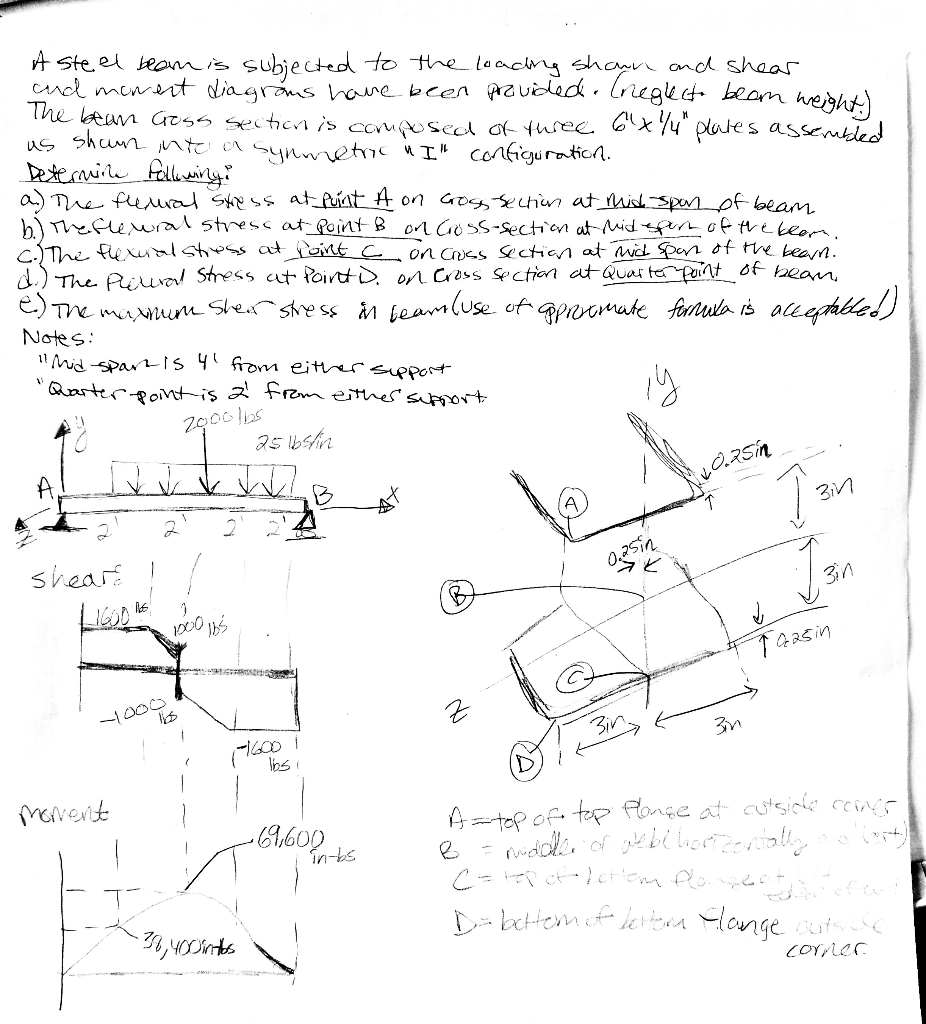 A steel beam is subjected to the loading shown and shear
and moment diagrams have been provided. (neglect beam weight.)
The beam cross section is composed of three 6"x1/4" plates assembled
as shown into a symmetric "I" configuration.
Determine following:
a.) The flexural stress at point A on cross-section at mid-span of beam
b.) The flexural stress at Point B on cross-section at mid-span of the beam.
c.) The flexural stress at Point C on cross section at mid span of the beam.
d.) The flexural stress at Point D. on cross section at quarter-point of beam
e.) The maximum shear stress in beam (use of approximate formula is acceptable)
Notes:
"Mid-span is 4' from either support
"Quarter-point is 2' from either support
y
2000 lbs
25 lbs/in
A
B
x
z
2' 2' 2' 2'
shear:
1600 lbs
1000 lbs
-1000 lbs
-1600 lbs
moment
69,600 in-lbs
38,400 in-lbs
y
0.25in
A
3in
0.25in
B
3in
0.25in
C
z
3in
3in
D
A = top of top flange at outside corner
B = middle of web (horizontally and
C = top of bottom flange at
D = bottom of bottom flange outside
corner.